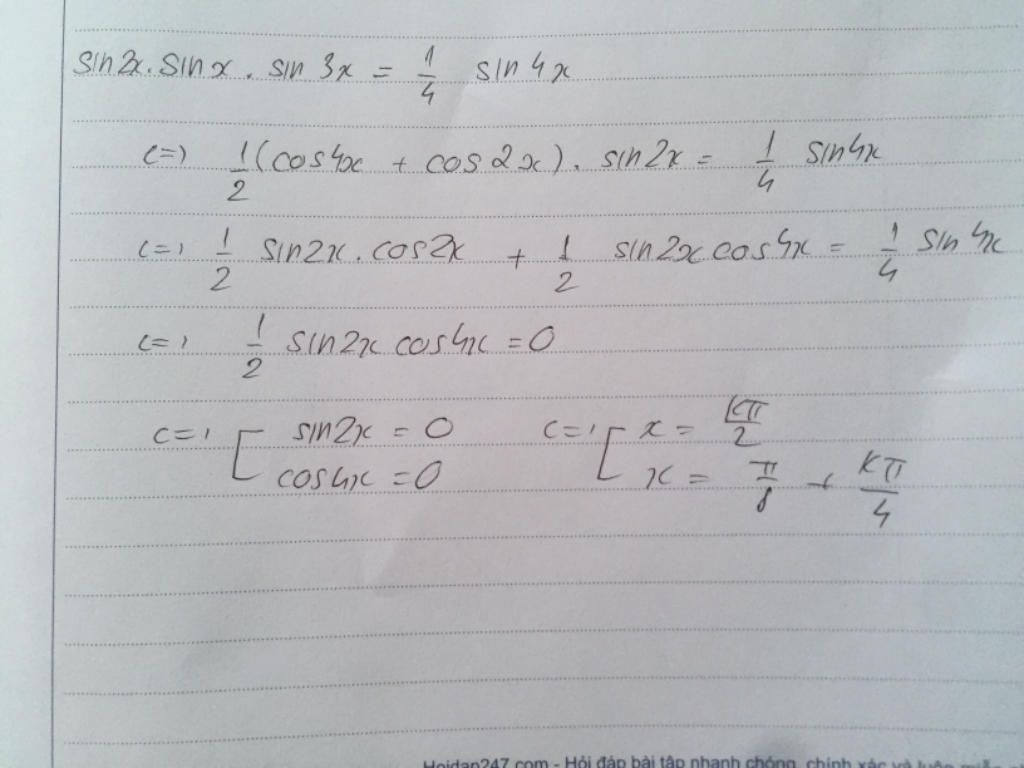 sin2x.sinx.sin 3x = 1/4 sin4x
<=> 1/2(cos4x + cos2x).sin2x = 1/4 sin4x
<=> 1/2 sin2x.cos2x + 1/2 sin2x cos4x = 1/4 sin4x
<=> 1/2 sin2x cos4x = 0
<=> [ sin2x = 0 <=> [ x = kπ/2
cos4x = 0 x = π/8 + kπ/4
Hoidap247.com - Hỏi đáp bài tập nhanh chóng, chính xác và luôn miễn